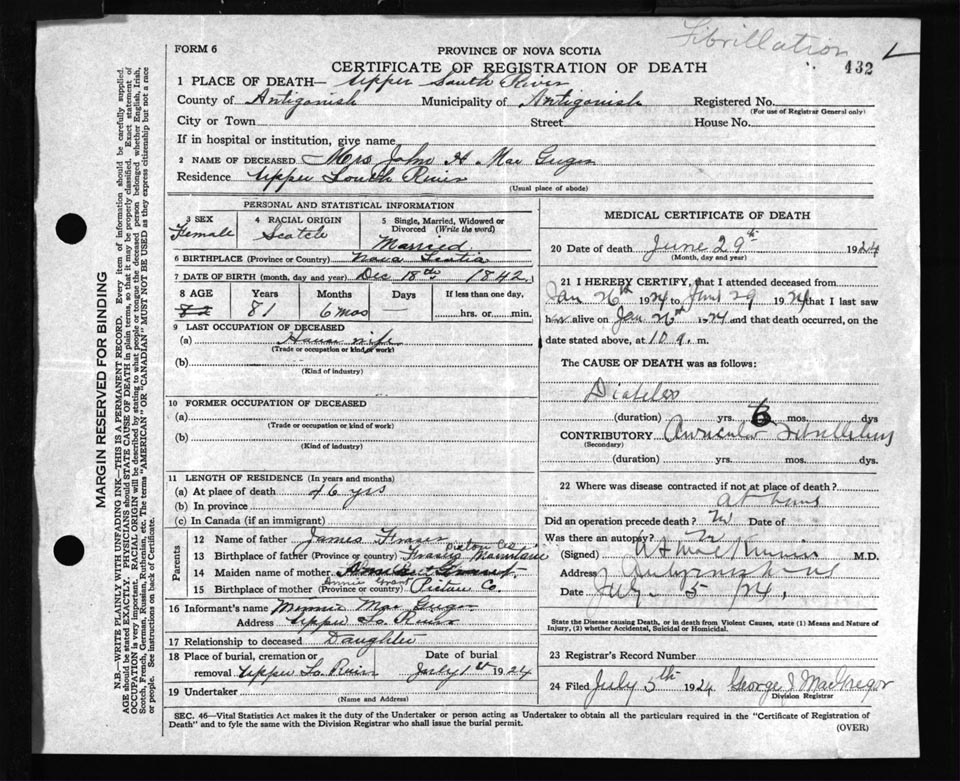 Fibrillation
FORM 6
PROVINCE OF NOVA SCOTIA
CERTIFICATE OF REGISTRATION OF DEATH
432
1 PLACE OF DEATH— Upper South River
County of Antigonish Municipality of Antigonish Registered No.
(For use of Registrar General only)
City or Town Street House No.
If in hospital or institution, give name
2 NAME OF DECEASED Mrs John H Mac
Residence Upper South River
(Usual place of abode)
PERSONAL AND STATISTICAL INFORMATION
3 SEX Female
4 RACIAL ORIGIN Scotch
5 Single, Married, Widowed or Divorced (Write the word) Married
6 BIRTHPLACE (Province or Country) Nova Scotia
7 DATE OF BIRTH (month, day and year) Dec 18th 1842
8 AGE Years Months Days If less than one day,
82 81 6 mos — hrs. or min.
9 LAST OCCUPATION OF DECEASED
(a) House wife
(Trade or occupation or kind of work)
(b)
(Kind of industry)
10 FORMER OCCUPATION OF DECEASED
(a)
(Trade or occupation or kind of work)
(b)
(Kind of industry)
11 LENGTH OF RESIDENCE (In years and months)
(a) At place of death 46 yrs
(b) In province
(c) In Canada (if an immigrant)
Parents
12 Name of father James Fraser
Pictou Co
13 Birthplace of father (Province or country) Frasers Mountain
14 Maiden name of mother
Annie Grant
15 Birthplace of mother (Province or country) Pictou Co.
16 Informant's name Minnie Mac
Address Upper So. River
17 Relationship to deceased Daughter
18 Place of burial, cremation or removal Upper So. River Date of burial July 1st 1924
19 Undertaker
(Name and Address)
MEDICAL CERTIFICATE OF DEATH
20 Date of death June 29th 1924
(Month, day and year)
21 I HEREBY CERTIFY, that I attended deceased from
Jan 26th 1924 to June 29 1924 that I last saw
her alive on Jan 26th 1924 and that death occurred, on the
date stated above, at 10 a. m.
The CAUSE OF DEATH was as follows:
Diabetes
(duration) yrs. 6 mos. dys
CONTRIBUTORY Auricular Fibrillation
(Secondary)
(duration) yrs. mos. dys.
22 Where was disease contracted if not at place of death?
at home
Did an operation precede death? No Date of
Was there an autopsy? No
(Signed) M.D.
Address Antigonish N.S
Date July 5 /24.
State the Disease causing Death, or in death from Violent Causes, state (1) Means and Nature of
Injury, (2) whether Accidental, Suicidal or Homicidal.
23 Registrar's Record Number
24 Filed July 5th 1924 George J MacGregor
Division Registrar
SEC. 46—Vital Statistics Act makes it the duty of the Undertaker or person acting as Undertaker to obtain all the particulars required in the "Certificate of Registration of
Death" and to fyle the same with the Division Registrar who shall issue the burial permit.
(OVER)
MARGIN RESERVED FOR BINDING
N.B.—WRITE PLAINLY WITH UNFADING INK—THIS IS A PERMANENT RECORD. Every item of information should be carefully supplied.
AGE should be stated EXACTLY. PHYSICIANS should STATE CAUSE OF DEATH in plain terms, so that it may be properly classified. Exact statement of
OCCUPATION is very important. RACIAL ORIGIN will be described by stating to what people or tongue the deceased person belonged whether English, Irish,
Scotch, French, German, Russian, Ruthenian, etc. The terms "AMERICAN" OR "CANADIAN" MUST NOT BE USED as they express citizenship but not a race
or people. See instructions on back of Certificate.